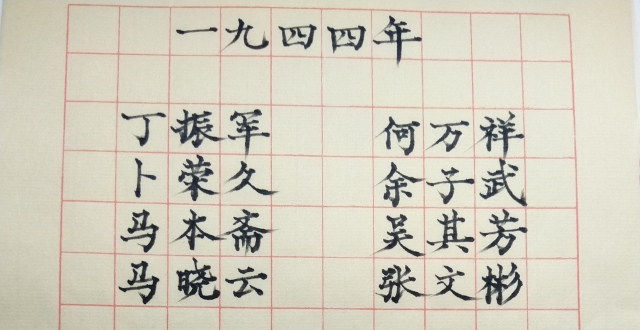 一九四四年
丁振军 何万祥
卜荣久 余子武
马本斋 吴其芳
马晓云 张文彬